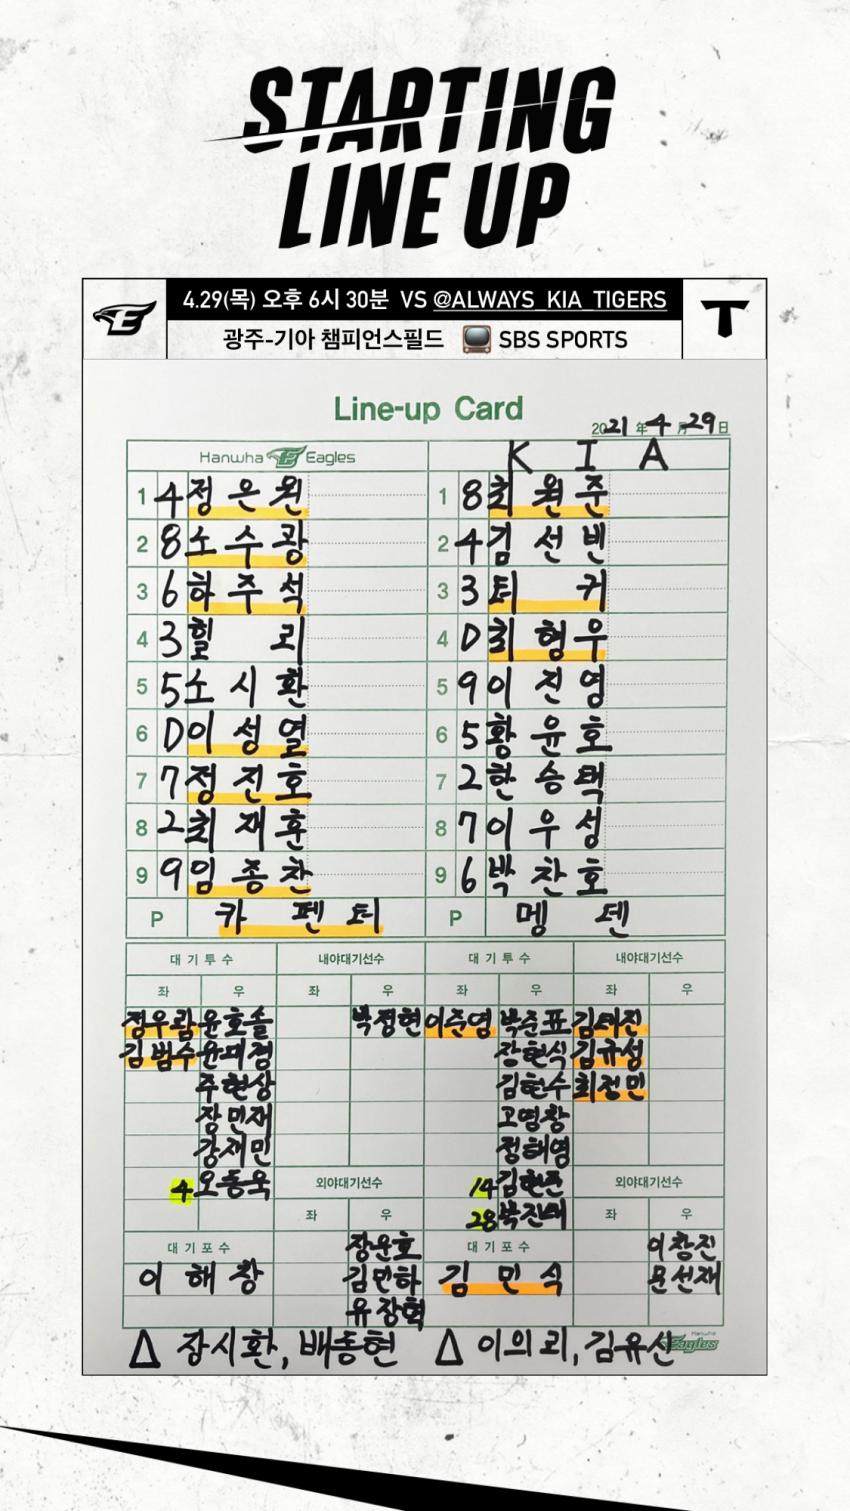 STARTING
LINE UP
4.29(목) 오후 6시 30분 VS @ALWAYS_KIA_TIGERS
광주-기아 챔피언스필드 SBS SPORTS
Line-up Card
2021年 4月 29日
Hanwha Eagles K I A
1 4 정은원 1 8 최원준
2 8 노수광 2 4 김선빈
3 6 하주석 3 3 터커
4 3 힐리 4 D 최형우
5 5 노시환 5 9 이진영
6 D 이성열 6 5 황윤호
7 7 정진호 7 2 한승택
8 2 최재훈 8 7 이우성
9 9 임종찬 9 6 박찬호
P 카펜터 P 멩덴
대기투수 내야대기선수 대기투수 내야대기선수
좌 우 좌 우 좌 우 좌 우
정우람 윤호솔 박정현 이준영 박준표 김태진
김범수 윤대경 장현식 김규성
주현상 김현수 최정민
장민재 고영창
강재민 정해영
4 오동욱 외야대기선수 14 김현준 외야대기선수
좌 우 28 박진태 좌 우
대기포수 장운호 대기포수 이창진
이해창 김민하 김민식 문선재
유장혁
△ 장시환, 배동현 △ 이의리, 김유신
Hanwha Eagles